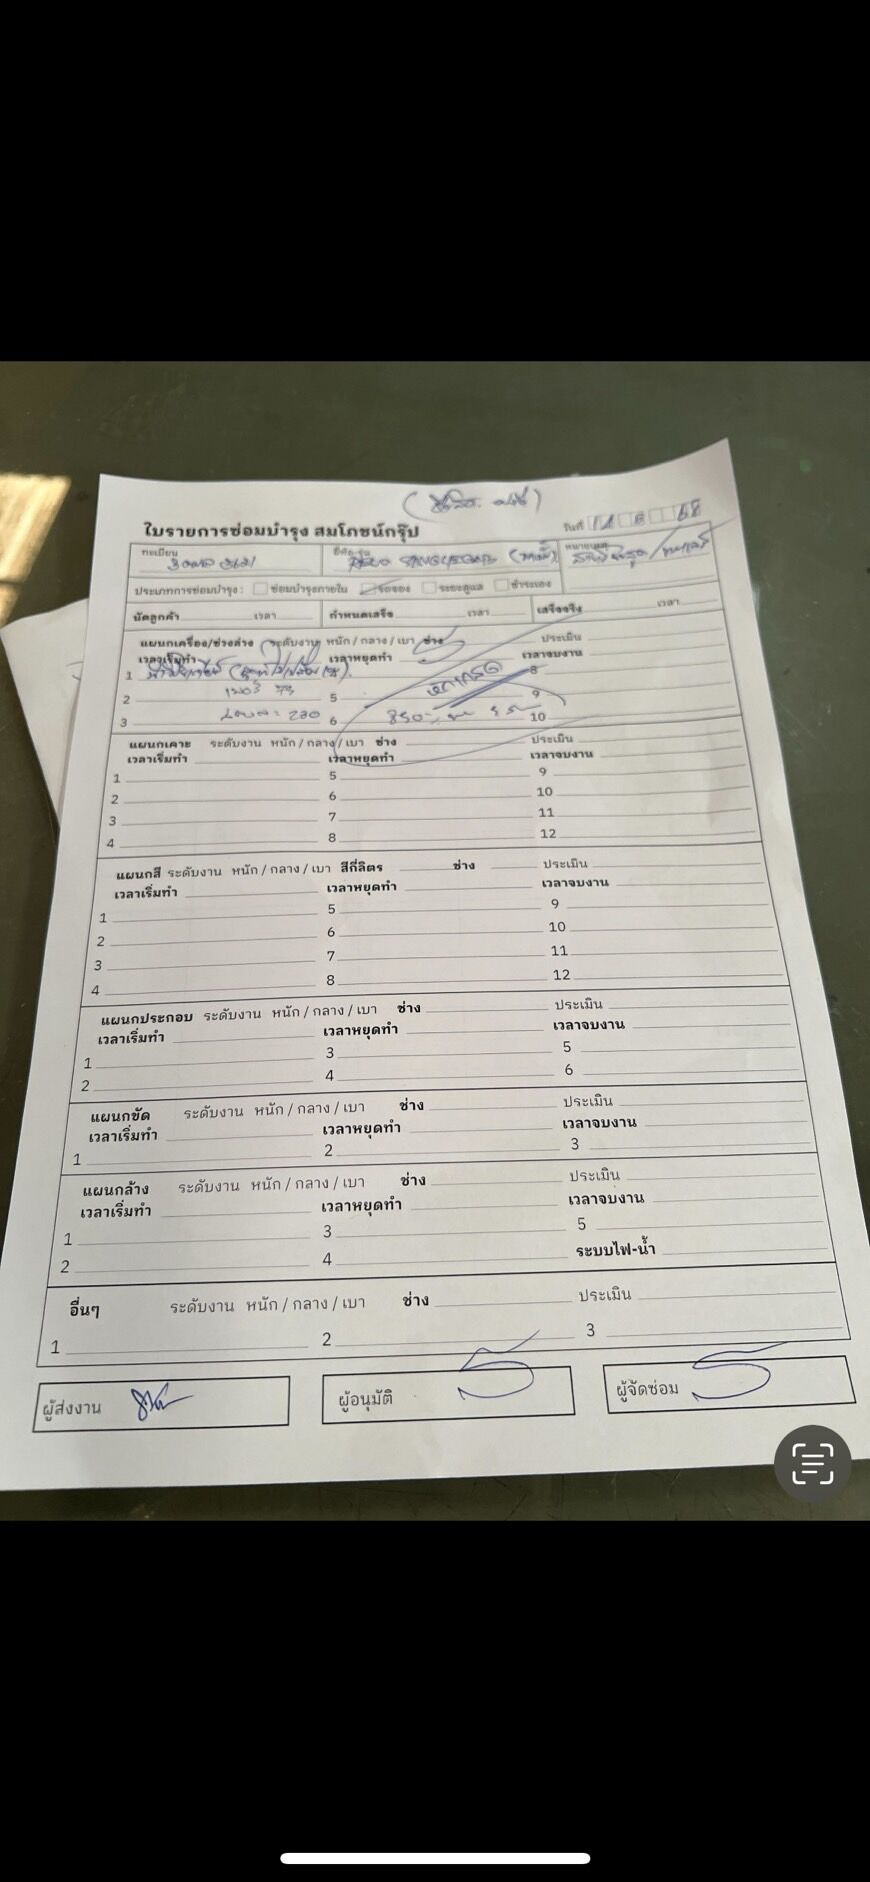 ใบรายการซ่อมบำรุง สมโภชน์กรุ๊ป วันที่ 68
ทะเบียน ยี่ห้อ-รุ่น REVO หมายเหตุ
ประเภทการซ่อมบำรุง : ซ่อมบำรุงภายใน รถจอง ระยะดูแล ชำระเอง
นัดลูกค้า เวลา กำหนดเสร็จ เวลา เสร็จจริง เวลา
แผนกเครื่อง/ช่วงล่าง ระดับงาน หนัก / กลาง / เบา ช่าง ประเมิน
เวลาเริ่มทำ เวลาหยุดทำ เวลาจบงาน
1 8
2 5 9
3 6 850 10
แผนกเคาะ ระดับงาน หนัก / กลาง / เบา ช่าง ประเมิน
เวลาเริ่มทำ เวลาหยุดทำ เวลาจบงาน
1 5 9
2 6 10
3 7 11
4 8 12
แผนกสี ระดับงาน หนัก / กลาง / เบา สีกี่ลิตร ช่าง ประเมิน
เวลาเริ่มทำ เวลาหยุดทำ เวลาจบงาน
1 5 9
2 6 10
3 7 11
4 8 12
แผนกประกอบ ระดับงาน หนัก / กลาง / เบา ช่าง ประเมิน
เวลาเริ่มทำ เวลาหยุดทำ เวลาจบงาน
1 3 5
2 4 6
แผนกขัด ระดับงาน หนัก / กลาง / เบา ช่าง ประเมิน
เวลาเริ่มทำ เวลาหยุดทำ เวลาจบงาน
1 2 3
แผนกล้าง ระดับงาน หนัก / กลาง / เบา ช่าง ประเมิน
เวลาเริ่มทำ เวลาหยุดทำ เวลาจบงาน
1 3 5
2 4 ระบบไฟ-น้ำ
อื่นๆ ระดับงาน หนัก / กลาง / เบา ช่าง ประเมิน
1 2 3
ผู้ส่งงาน ผู้อนุมัติ ผู้จัดซ่อม